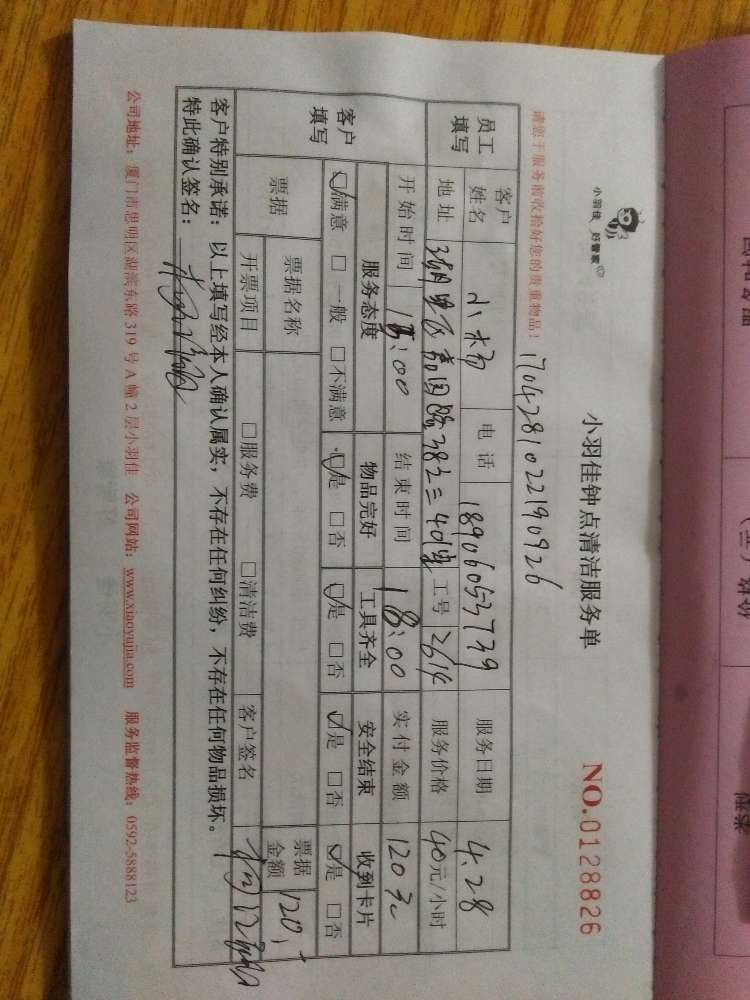 小羽佳 好管家
小羽佳钟点清洁服务单
NO.0128826
请您于服务前收拾好您的贵重物品！
170428102219 0926
员工填写
客户姓名 小杨 电话 18906053739 服务日期 4.28
地址 嘉园路 工号 2614 服务价格 40元/小时
开始时间 15:00 结束时间 18:00 实付金额 120元
客户填写
服务态度 物品完好 工具齐全 安全结束 收到卡片
☑满意 □一般 □不满意 ☑是 □否 ☑是 □否 ☑是 □否 ☑是 □否
票据 票据名称 票据金额 120
开票项目 □服务费 □清洁费 客户签名
客户特别承诺：以上填写经本人确认属实，不存在任何纠纷，不存在任何物品损坏。
特此确认签名：
公司地址：厦门市思明区湖滨东路 319 号 A 幢 2 层小羽佳 公司网站：www.xiaoyujia.com 服务监督热线：0592-5888123